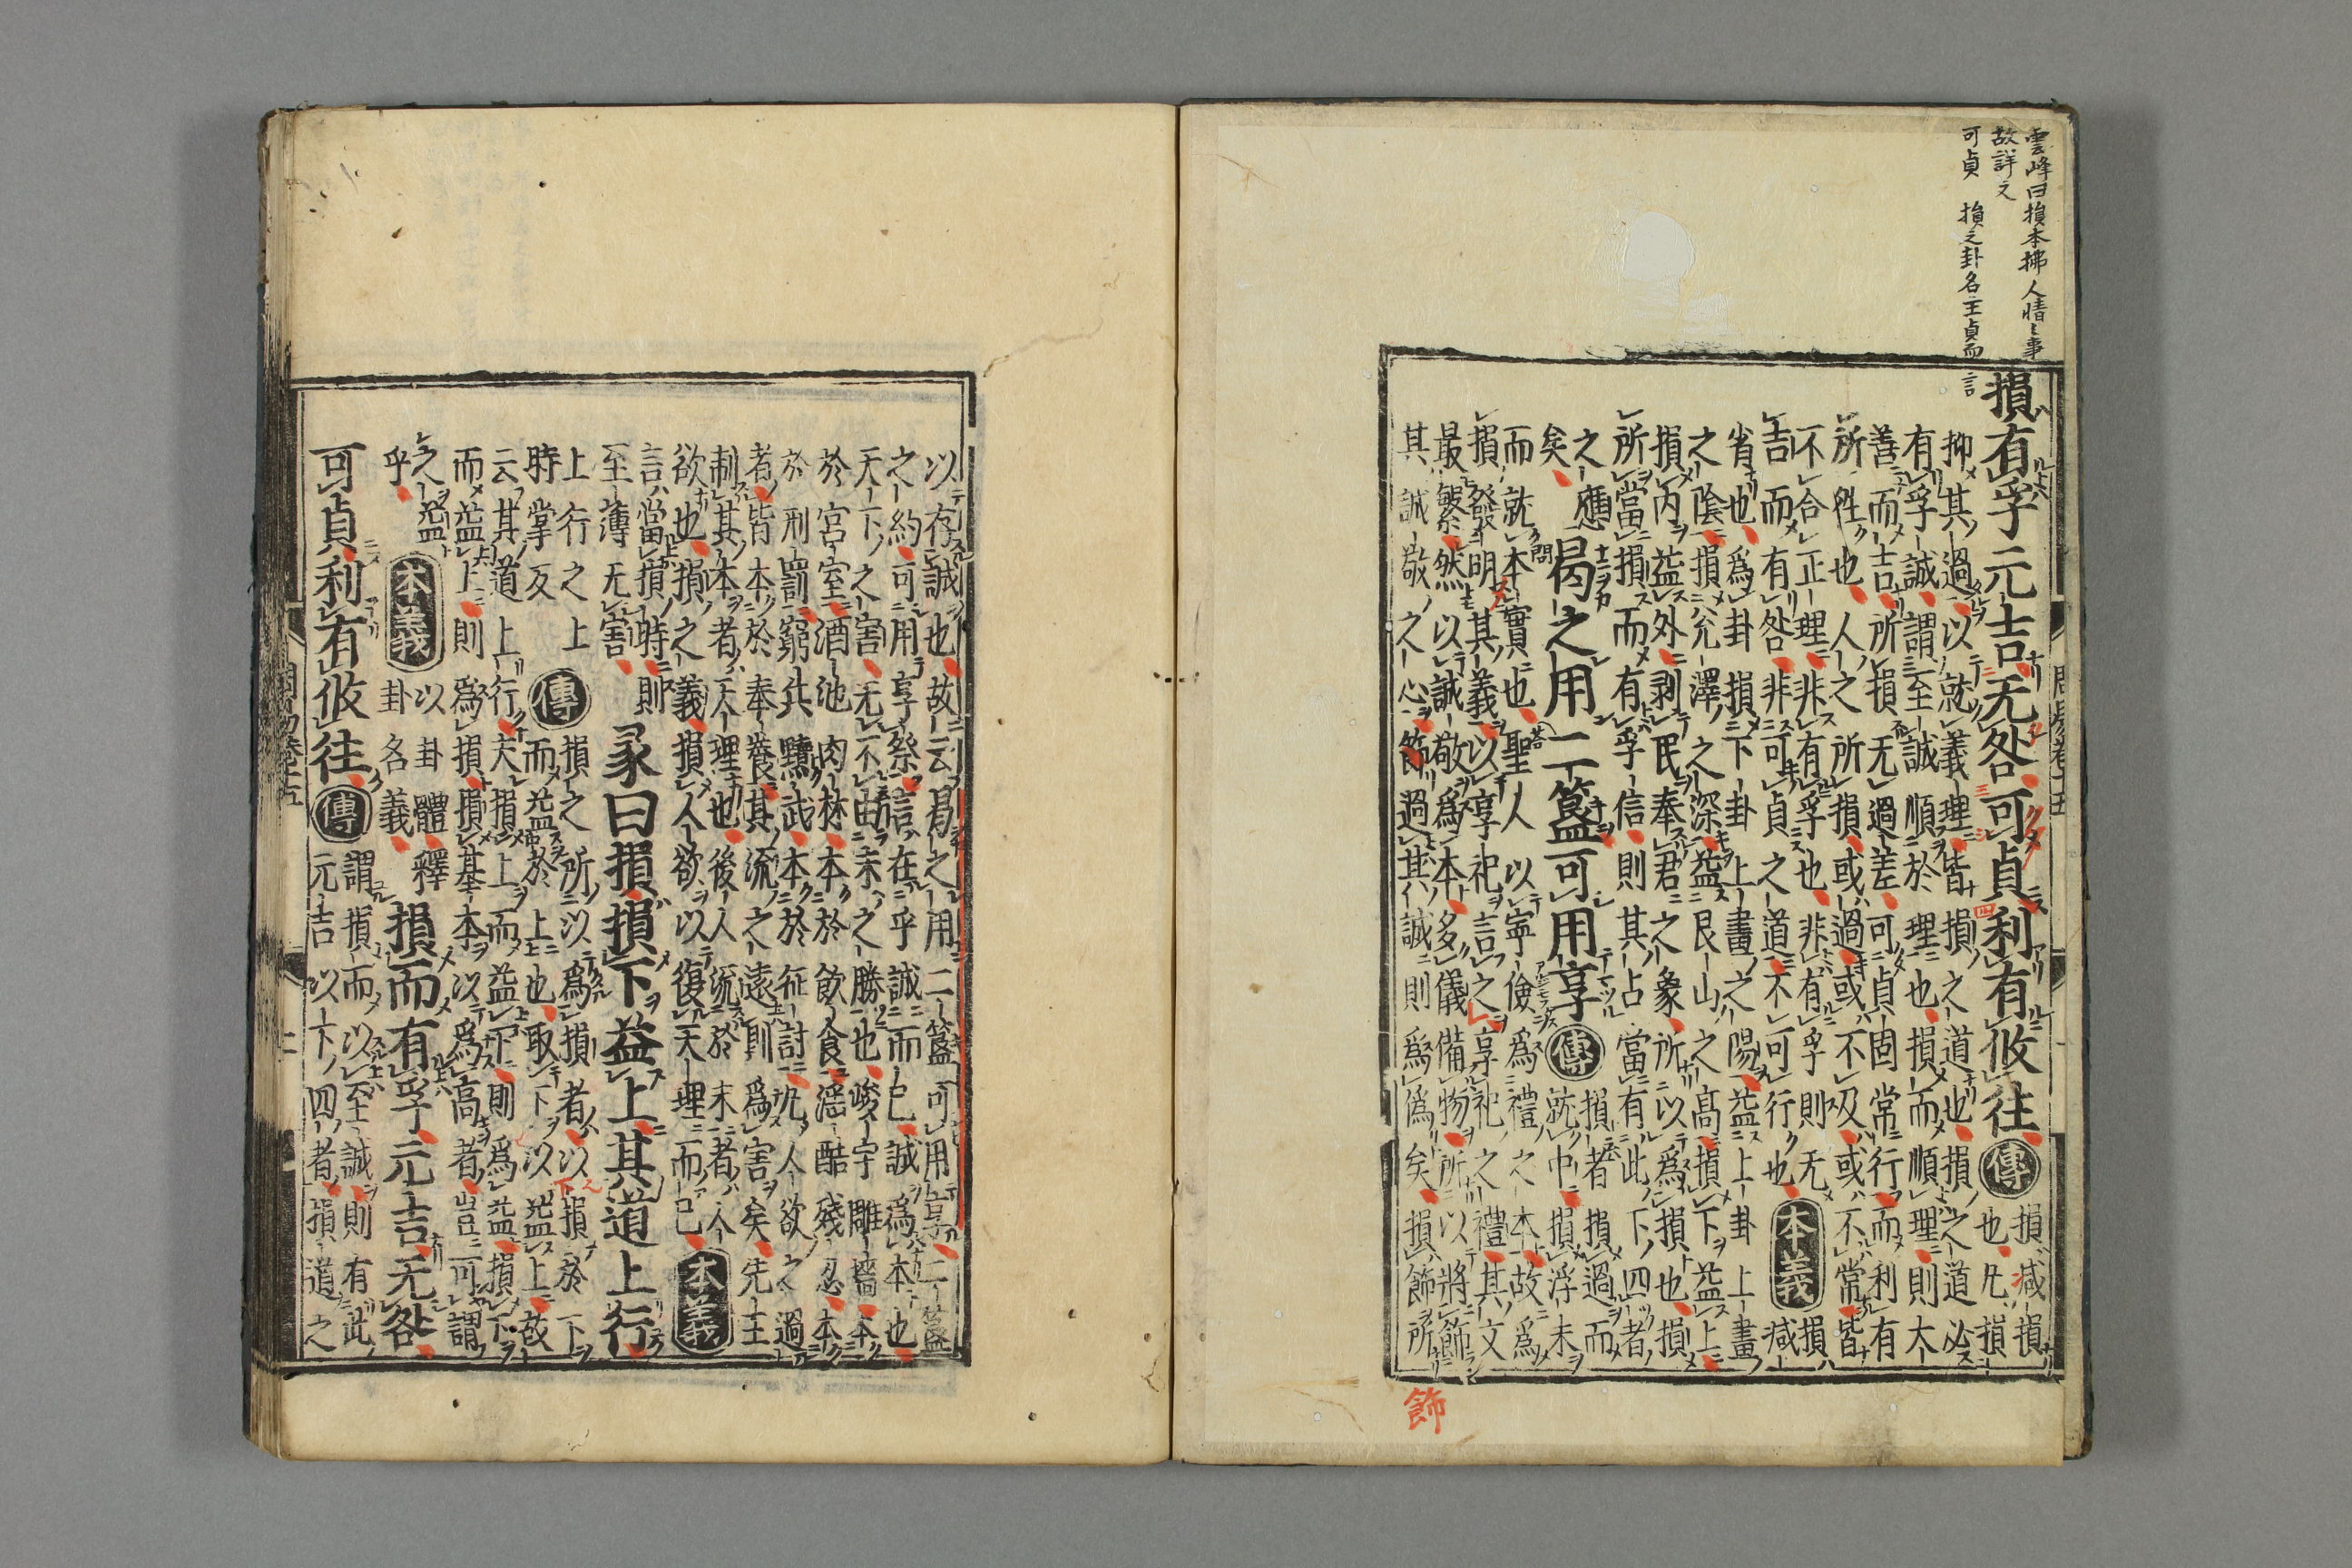 雲峰曰損本拂人情之事
故詳文
可貞　損之卦名主貞而言
損有孚元吉无咎可貞利有攸往傳損減損
也凡損
抑其過以就義理皆損之道也損之道必
有孚誠謂至誠順於理也損而順理則大
善而吉所損无過差可貞固常行而利有
所徃也人之所損或過或不及或不常皆
不合正理非有孚也非有孚則无
吉而有咎非可貞之道不可行也本義損減
省也為卦損下卦上畫之陽益上卦上畫
之陰損兌澤之深益艮山之高損下益上
損内益外剥民奉君之象所以為損也損
所當損而有孚信則其占當有此下四者
之應
矣
曷之用二簋可用享傳損者損過而
就中損浮末
而就本實也聖人以寧儉為禮之本故為
損發明其義以享祀言之享祀之禮其文
最繁然以誠敬為本多儀備物所以將飾
其誠敬之心飾過其誠則為偽矣損飾所
飾
周易卷十五
以存誠也故云曷之用二簋可用享二簋
之約可用享祭信在乎誠而已誠為本也
天下之害无不由末之勝也峻宇雕墻本
於宮室酒池肉林本於飲食淫酷殘忍本
於刑罰窮兵黷武本於征討凡人欲之過
者皆本於奉養其流之遠則為害矣先王
制其本者天理也後人流於末者人
欲也損之義損人欲以復天理而已本義
言當損時則
至薄无害
彖曰損損下益上其道上行
上行之上
時掌反
傳損之所以為損者以損於下
而益於上也取下以益上故
云其道上行夫損上而益下則為益損下
而益上則為損損基本以為高者豈可謂
之益
乎
本義以卦體釋
卦名義
損而有孚元吉无咎
可貞利有攸往傳謂損而以至誠則有此
元吉以下四者損道之
周易卷十五
二